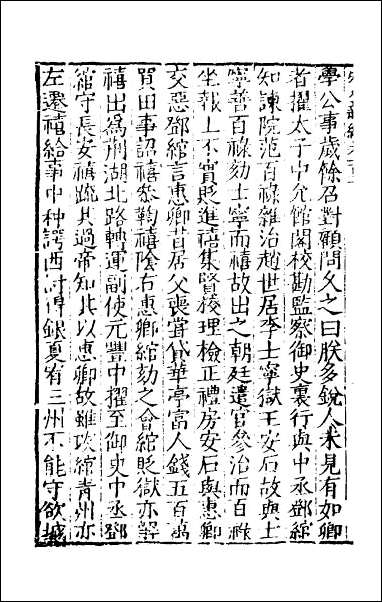 學公事歲餘召對顧問久之曰朕多銳人未見有如卿
者擢太子中允館閣校勘監察御史裏行與中丞鄧綰
知諫院范百祿雜治趙世居李士寧獄王安石故與士
寧善百祿劾士寧而禧故出之朝廷遣官參治而百祿
坐報上不實貶進禧集賢校理檢正禮房安石與惠卿
交惡鄧綰言惠卿昔居父喪嘗貸華亭富人錢五百萬
買田事詔禧參鞫禧陰右惠卿綰劾之會綰貶獄亦解
禧出為荊湖北路轉運副使元豐中擢至御史中丞鄧
綰守長安禧疏其過帝知其以惠卿故雖改綰青州亦
左遷禧給事中种諤西討得銀夏宥三州不能守欲城